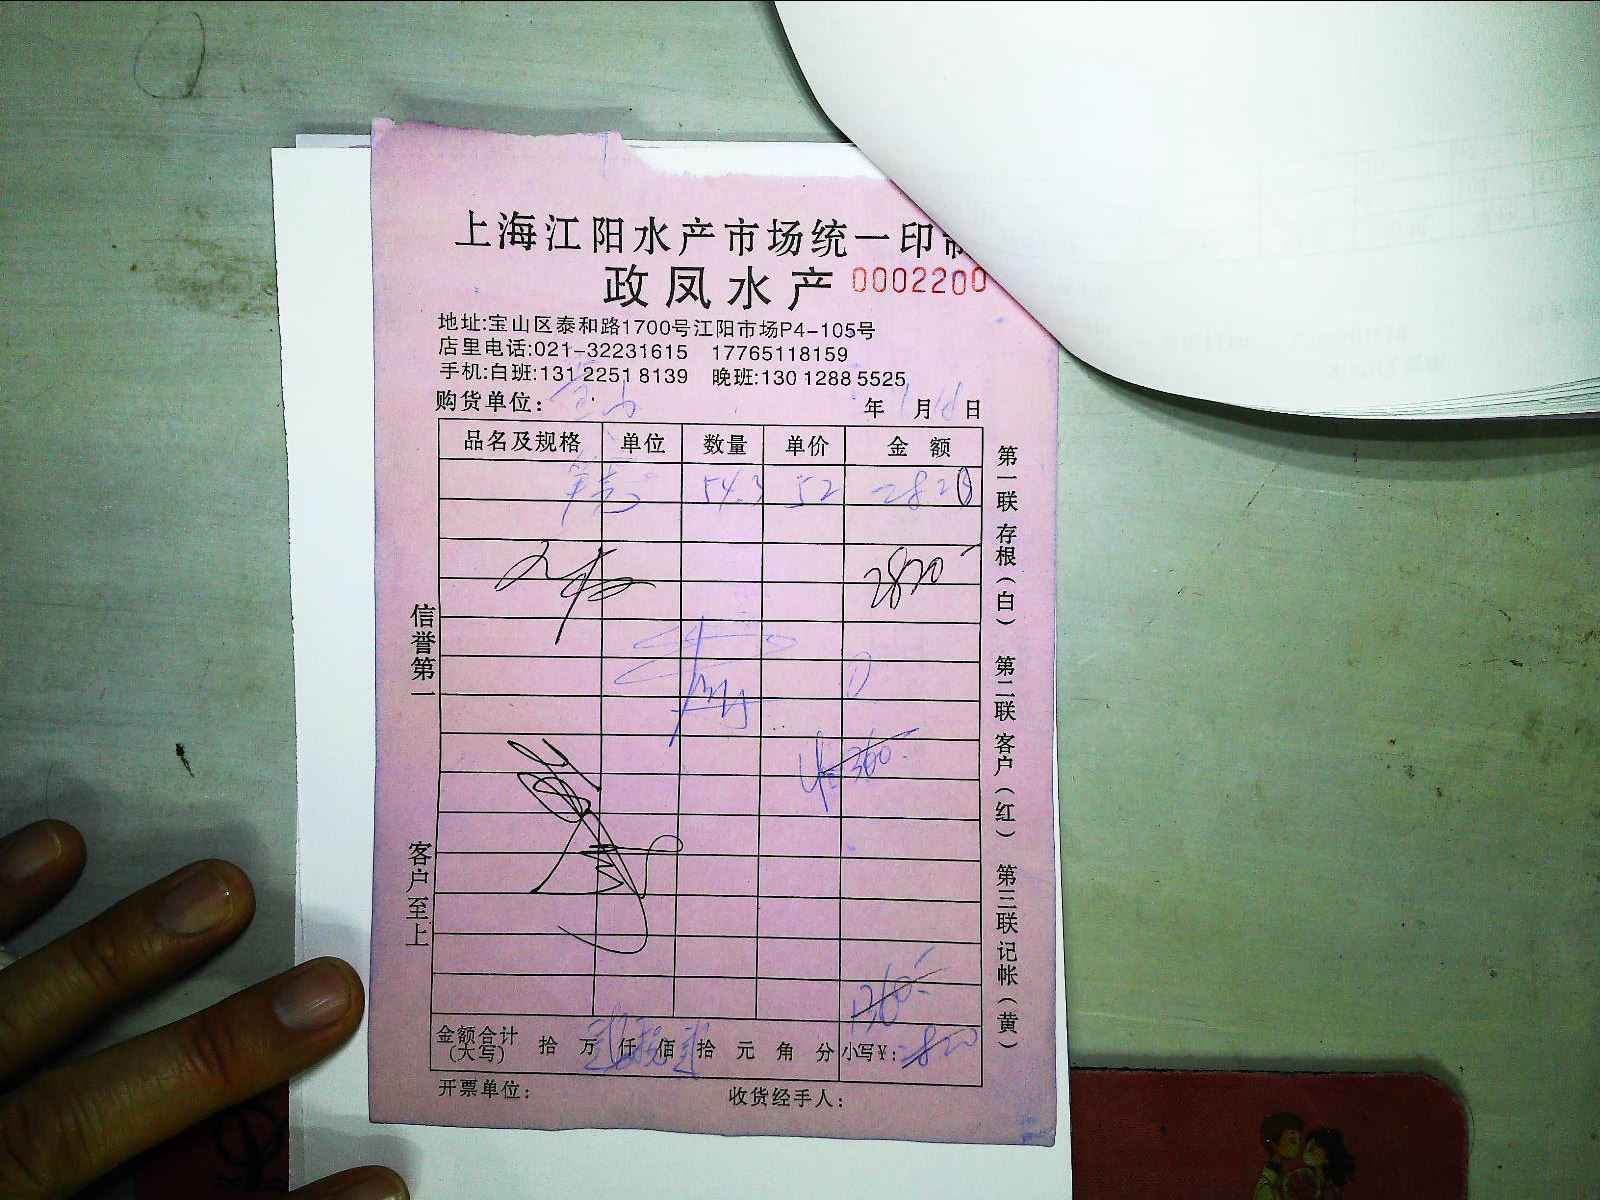 上海江阳水产市场统一印
政凤水产 0002200
地址:宝山区泰和路1700号江阳市场P4-105号
店里电话:021-32231615 17765118159
手机:白班:131 2251 8139 晚班:130 1288 5525
购货单位: 年 月 日
品名及规格 单位 数量 单价 金额
54.3 52 2820
2820
360
1360
金额合计(大写) 拾 万 仟 佰 拾 元 角 分 小写¥: 2820
开票单位: 收货经手人:
信誉第一
客户至上
第一联 存根(白) 第二联 客户(红) 第三联 记帐(黄)